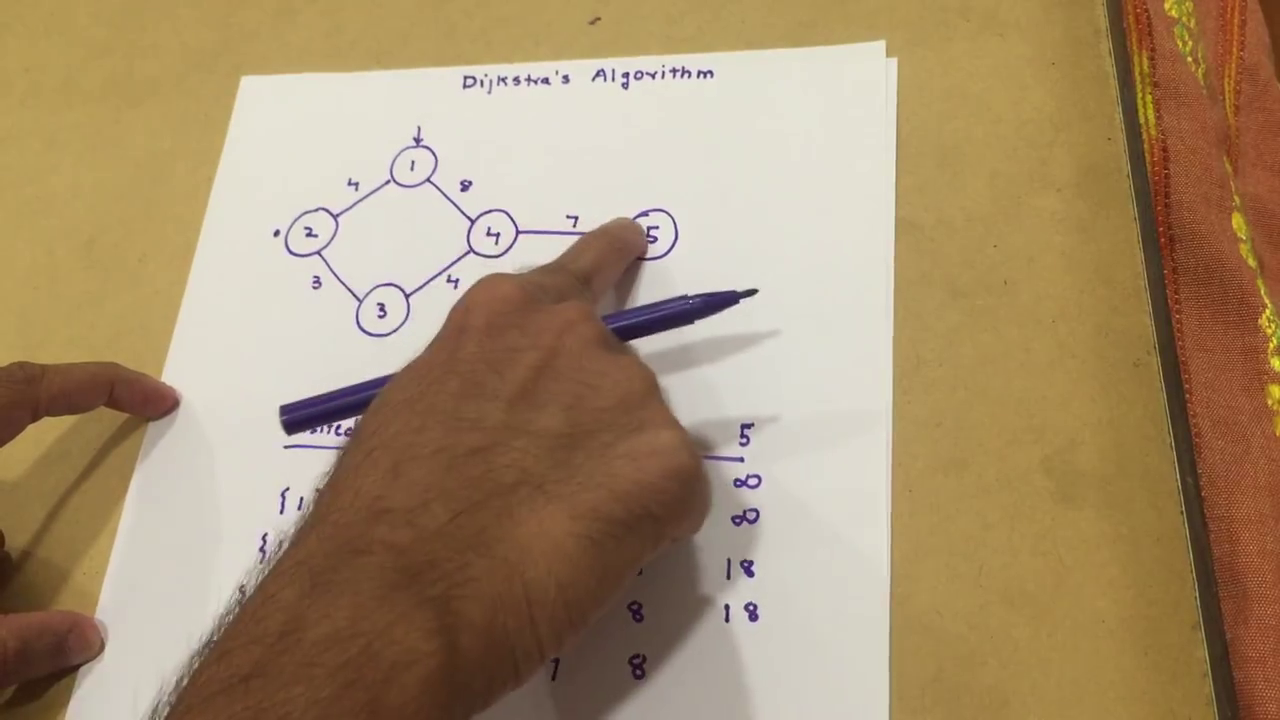 Dijkstra's Algorithm
1
4 8
2 4 7 5
3 4
3
5
{1 ∞
{ ∞
18
8 18
7 8